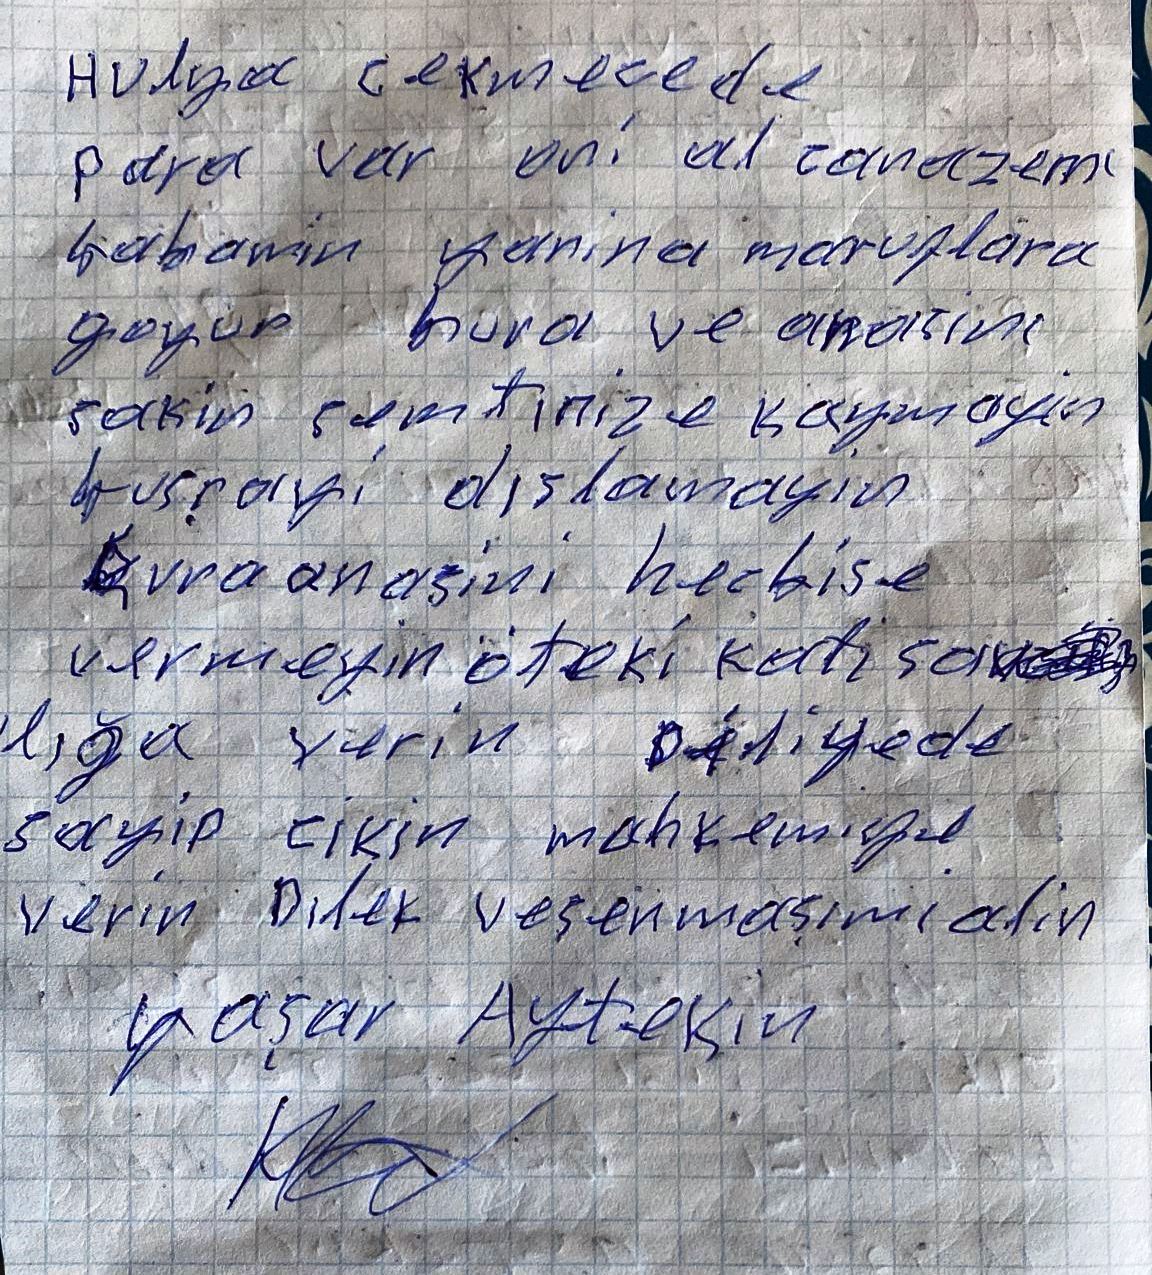 Hulya cekmecede
para var oni al canazemi
babamin yanina maruflara
goyun bura ve anasini
sakin semtinize koymayin
kuşrayi dişlamayin
Bura anaşini hecbise
vermeyin öteki kati sav
liğa verin Deliyede
sayip cikin mahkemiye
verin Dilek veşenmaşimi alin
yaşar Aytekin